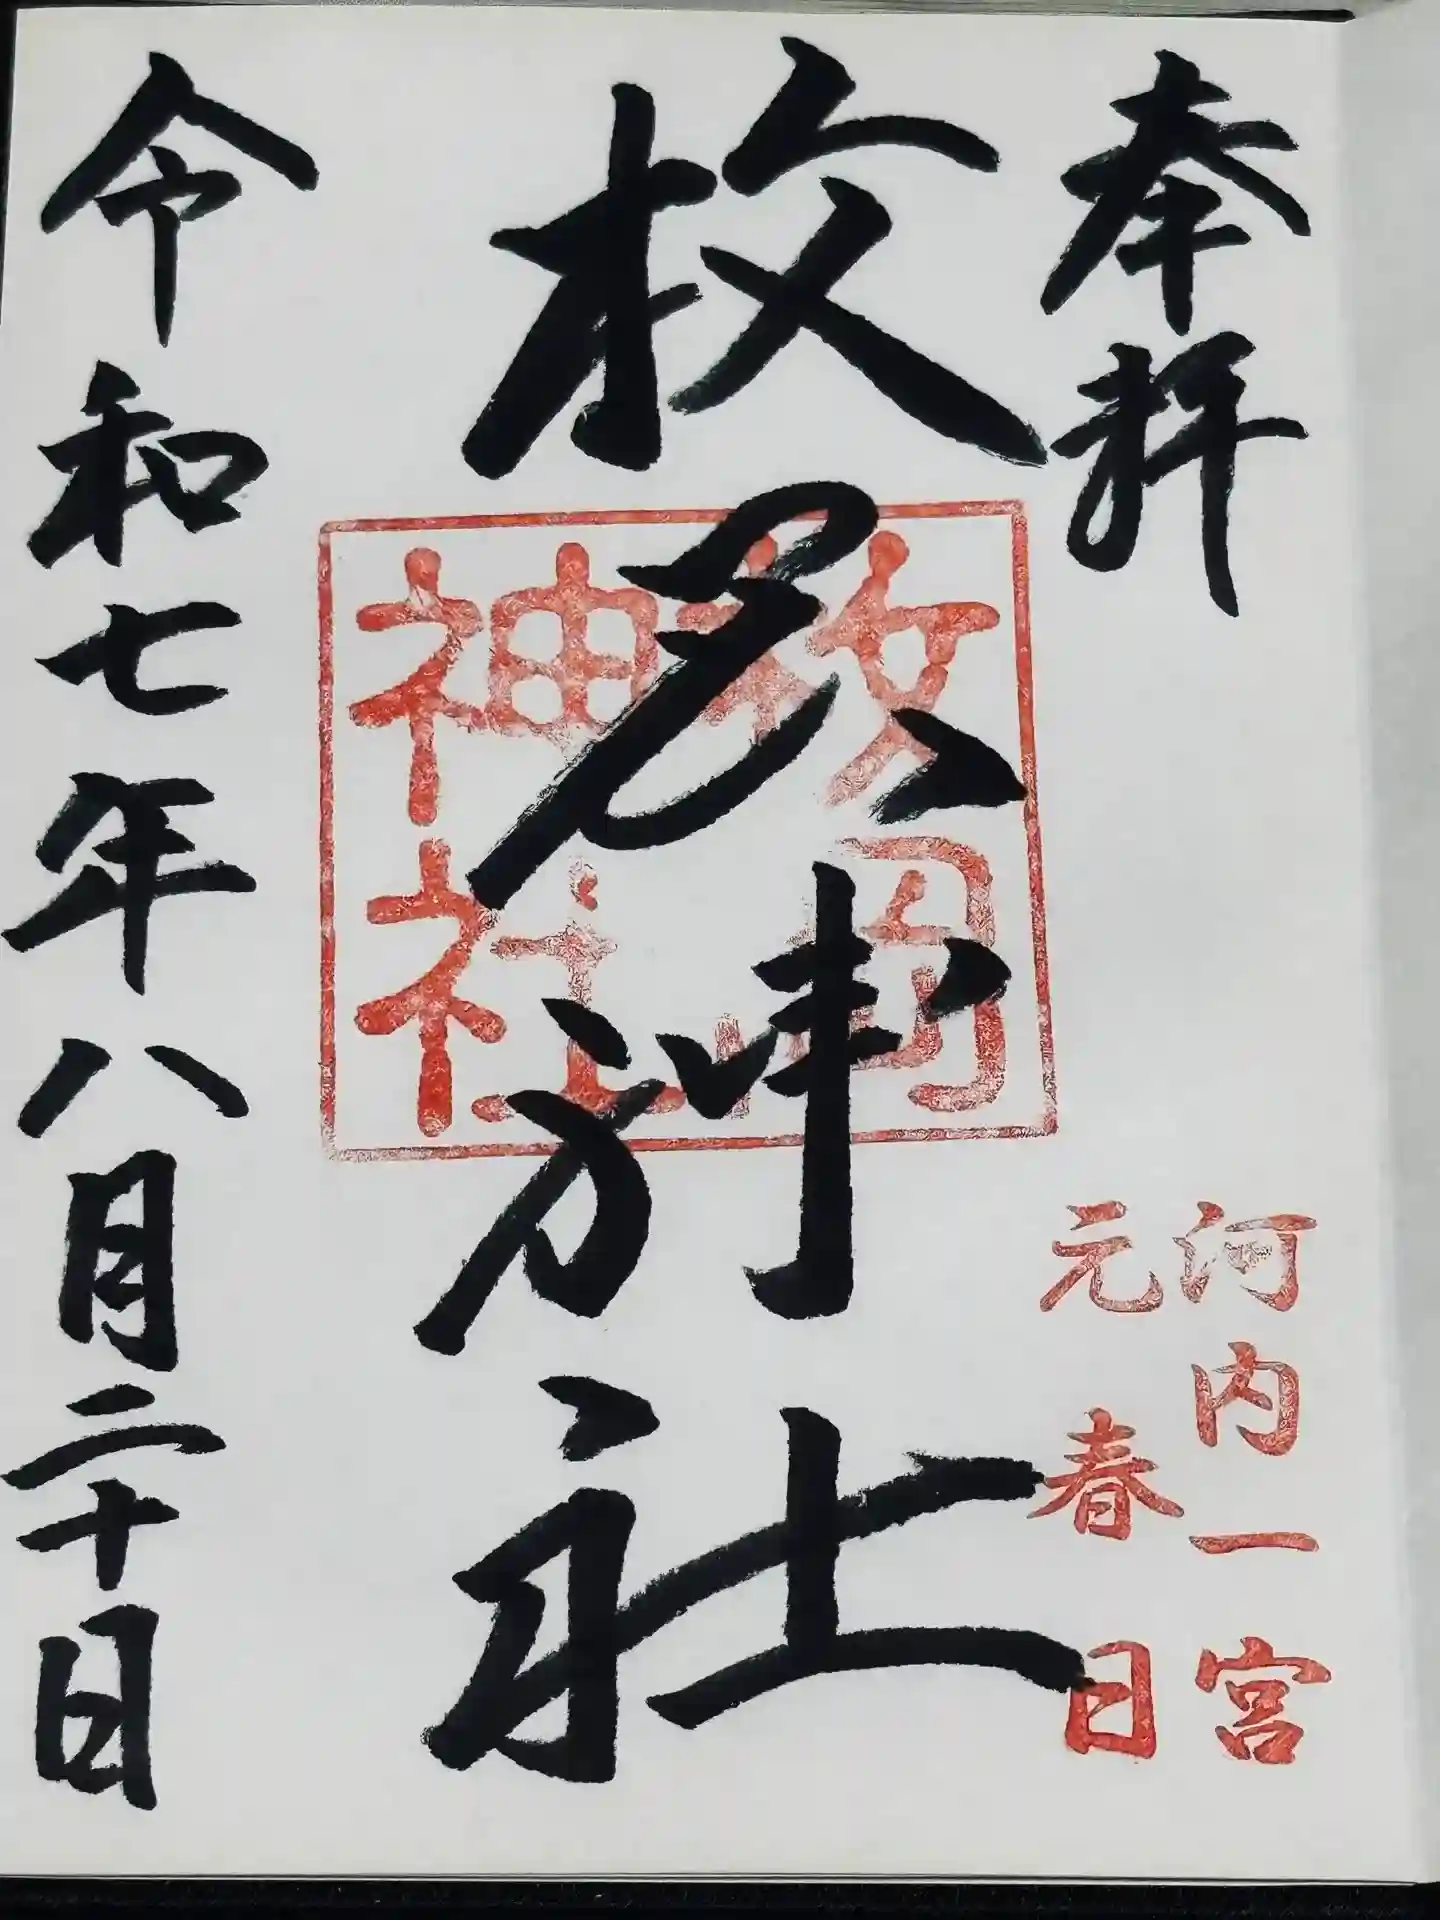 奉拝
河内一宮
元春日
枚岡神社
枚岡
神社
令和七年八月二十日